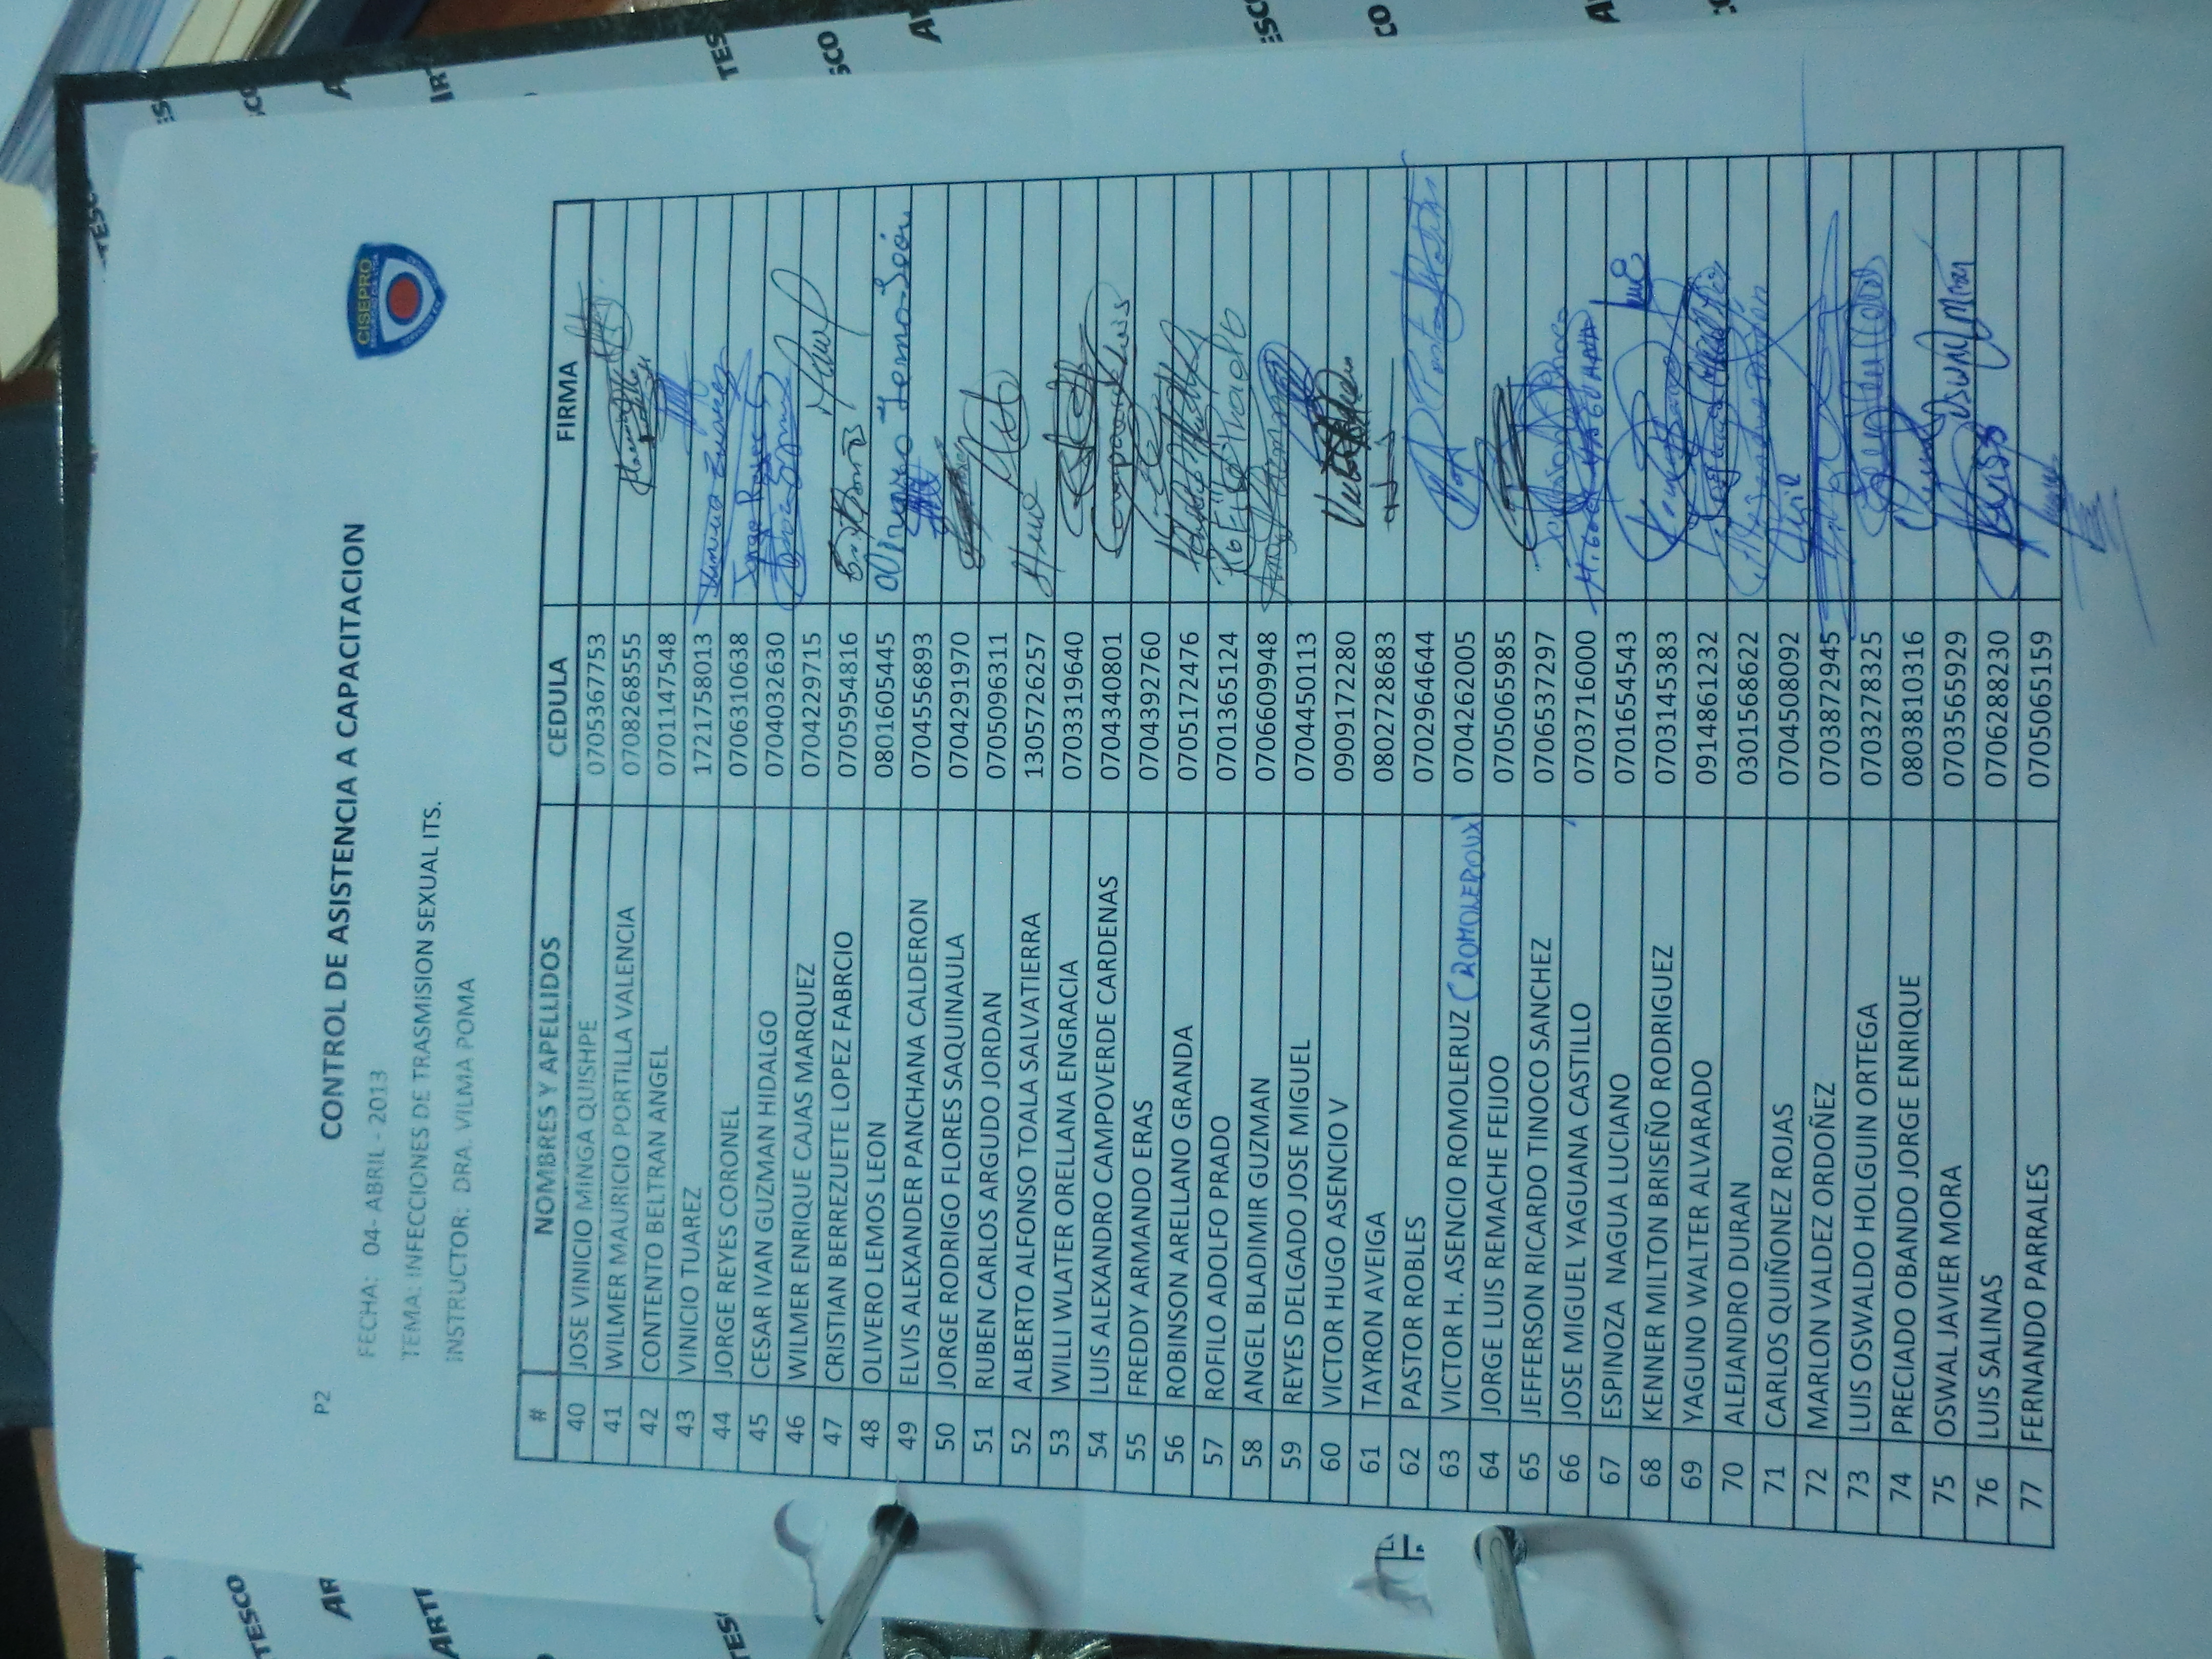 CISEPRO
P2
CONTROL DE ASISTENCIA A CAPACITACION
FECHA: 04- ABRIL - 2013
TEMA: INFECCIONES DE TRASMISION SEXUAL ITS.
INSTRUCTOR: DRA. VILMA POMA
# NOMBRES Y APELLIDOS CEDULA FIRMA
40 JOSE VINICIO MINGA QUISHPE 0705367753
41 WILMER MAURICIO PORTILLA VALENCIA 0708268555
42 CONTENTO BELTRAN ANGEL 0701147548
43 VINICIO TUAREZ 1721758013
44 JORGE REYES CORONEL 0706310638
45 CESAR IVAN GUZMAN HIDALGO 0704032630
46 WILMER ENRIQUE CAJAS MARQUEZ 0704229715
47 CRISTIAN BERREZUETE LOPEZ FABRCIO 0705954816
48 OLIVERO LEMOS LEON 0801605445
49 ELVIS ALEXANDER PANCHANA CALDERON 0704556893
50 JORGE RODRIGO FLORES SAQUINAULA 0704291970
51 RUBEN CARLOS ARGUDO JORDAN 0705096311
52 ALBERTO ALFONSO TOALA SALVATIERRA 1305726257
53 WILLI WLATER ORELLANA ENGRACIA 0703319640
54 LUIS ALEXANDRO CAMPOVERDE CARDENAS 0704340801
55 FREDDY ARMANDO ERAS 0704392760
56 ROBINSON ARELLANO GRANDA 0705172476
57 ROFILO ADOLFO PRADO 0701365124
58 ANGEL BLADIMIR GUZMAN 0706609948
59 REYES DELGADO JOSE MIGUEL 0704450113
60 VICTOR HUGO ASENCIO V 0909172280
61 TAYRON AVEIGA 0802728683
62 PASTOR ROBLES 0702964644
63 VICTOR H. ASENCIO ROMOLERUZ (ROMOLEROUX) 0704262005
64 JORGE LUIS REMACHE FEIJOO 0705065985
65 JEFFERSON RICARDO TINOCO SANCHEZ 0706537297
66 JOSE MIGUEL YAGUANA CASTILLO 0703716000
67 ESPINOZA NAGUA LUCIANO 0701654543
68 KENNER MILTON BRISEÑO RODRIGUEZ 0703145383
69 YAGUNO WALTER ALVARADO 0914861232
70 ALEJANDRO DURAN 0301568622
71 CARLOS QUIÑONEZ ROJAS 0704508092
72 MARLON VALDEZ ORDOÑEZ 0703872945
73 LUIS OSWALDO HOLGUIN ORTEGA 0703278325
74 PRECIADO OBANDO JORGE ENRIQUE 0803810316
75 OSWAL JAVIER MORA 0703565929
76 LUIS SALINAS 0706288230
77 FERNANDO PARRALES 0705065159